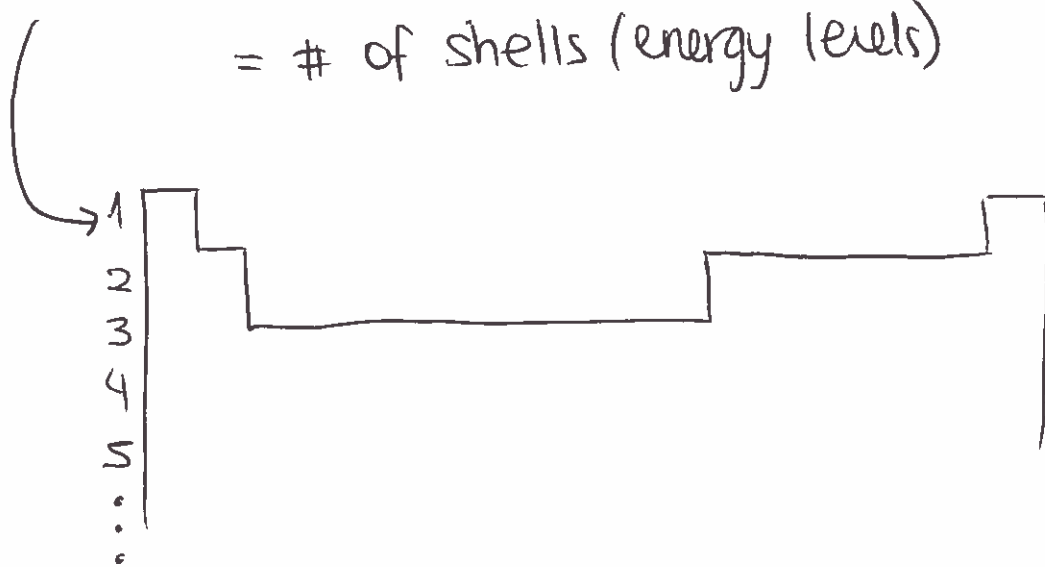 = # of shells (energy levels)
1
2
3
4
5
⋮